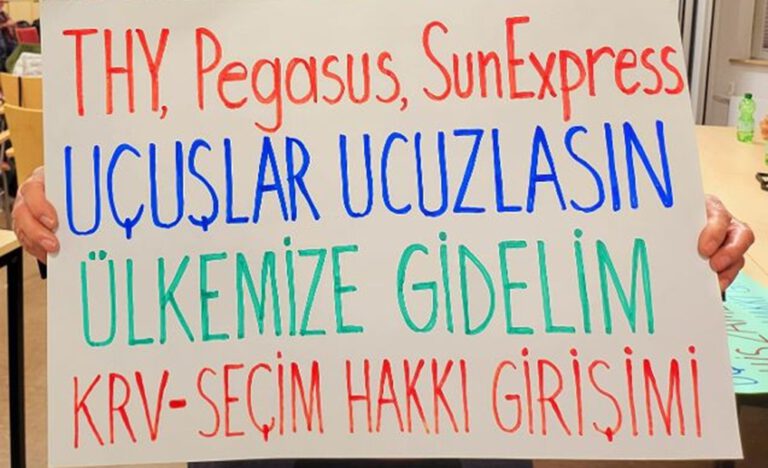 THY, Pegasus, SunExpress
UÇUŞLAR UCUZLASIN
ÜLKEMİZE GİDELİM
KRV-SEÇİM HAKKI GİRİŞİMİ